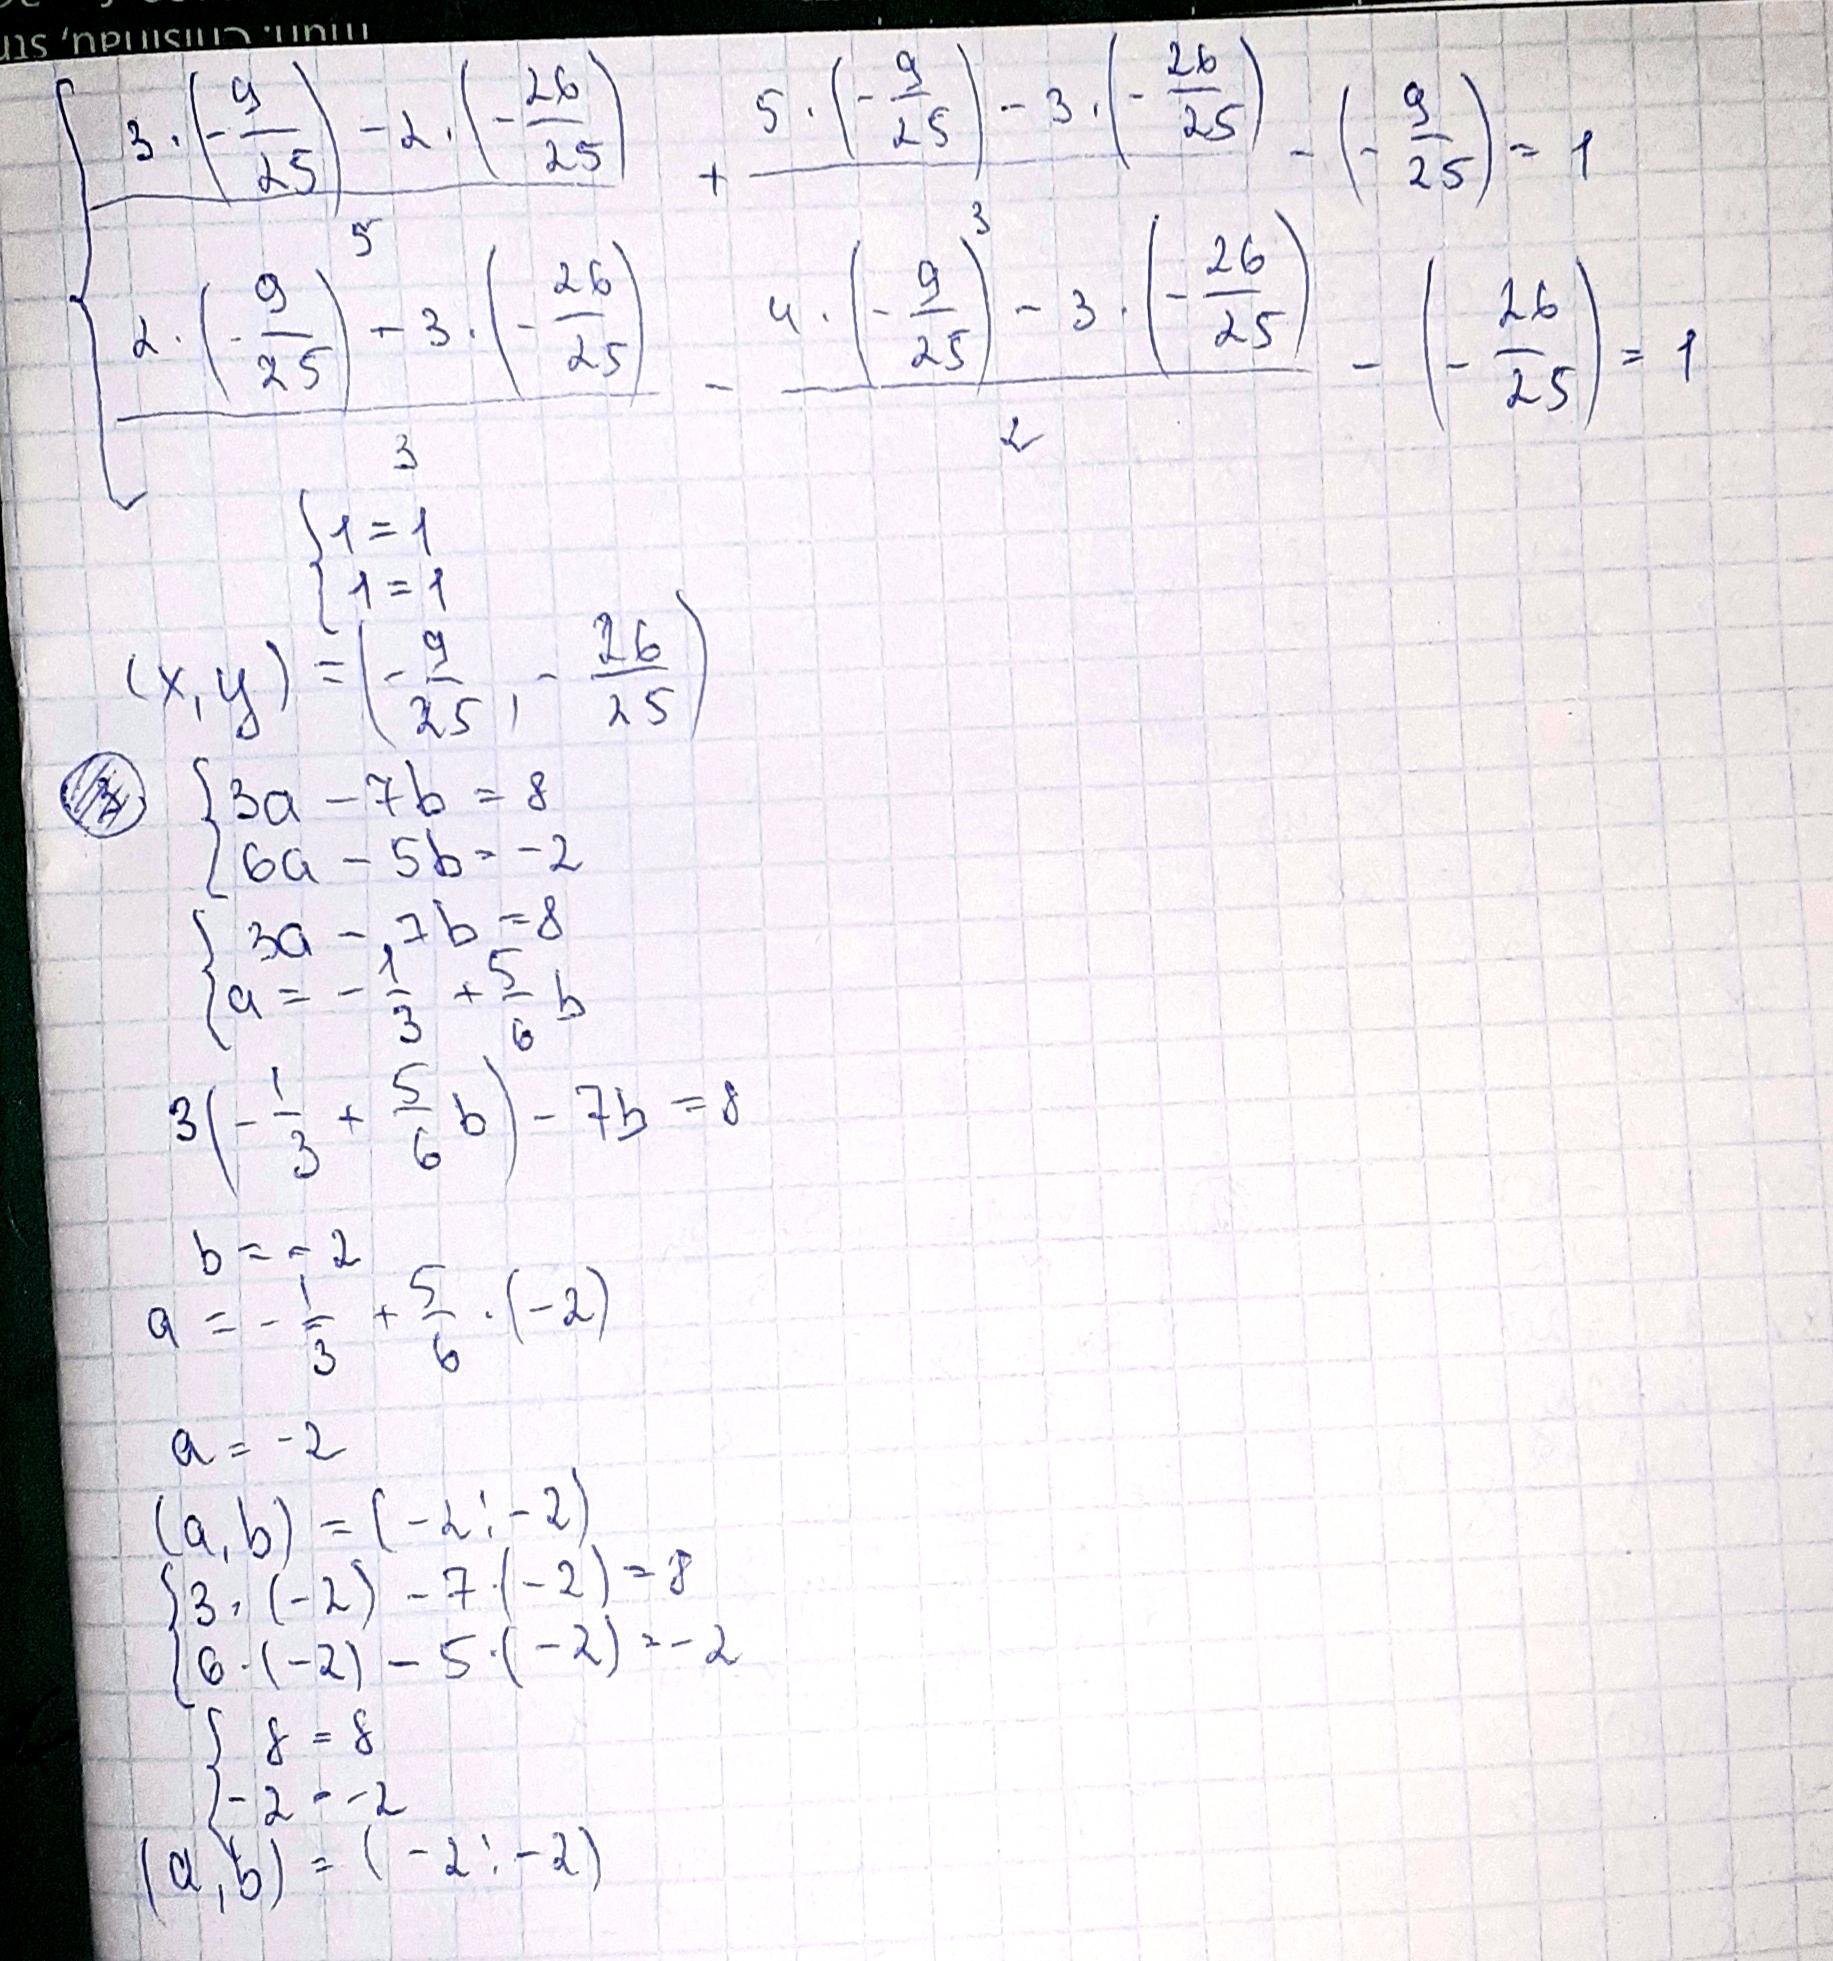 { (3·(-9/25) - 2·(-26/25))/5 + (5·(-9/25) - 3·(-26/25))/3 - (-9/25) = 1
(2·(-9/25) - 3·(-26/25))/3 - (4·(-9/25) - 3·(-26/25))/2 - (-26/25) = 1
{ 1 = 1
1 = 1
(x, y) = (-9/25, -26/25)
{ 3a - 7b = 8
6a - 5b = -2
{ 3a - 7b = 8
a = -1/3 + 5/6 b
3(-1/3 + 5/6 b) - 7b = 8
b = -2
a = -1/3 + 5/6 · (-2)
a = -2
(a, b) = (-2; -2)
{ 3·(-2) - 7·(-2) = 8
6·(-2) - 5·(-2) = -2
{ 8 = 8
-2 = -2
(a, b) = (-2; -2)